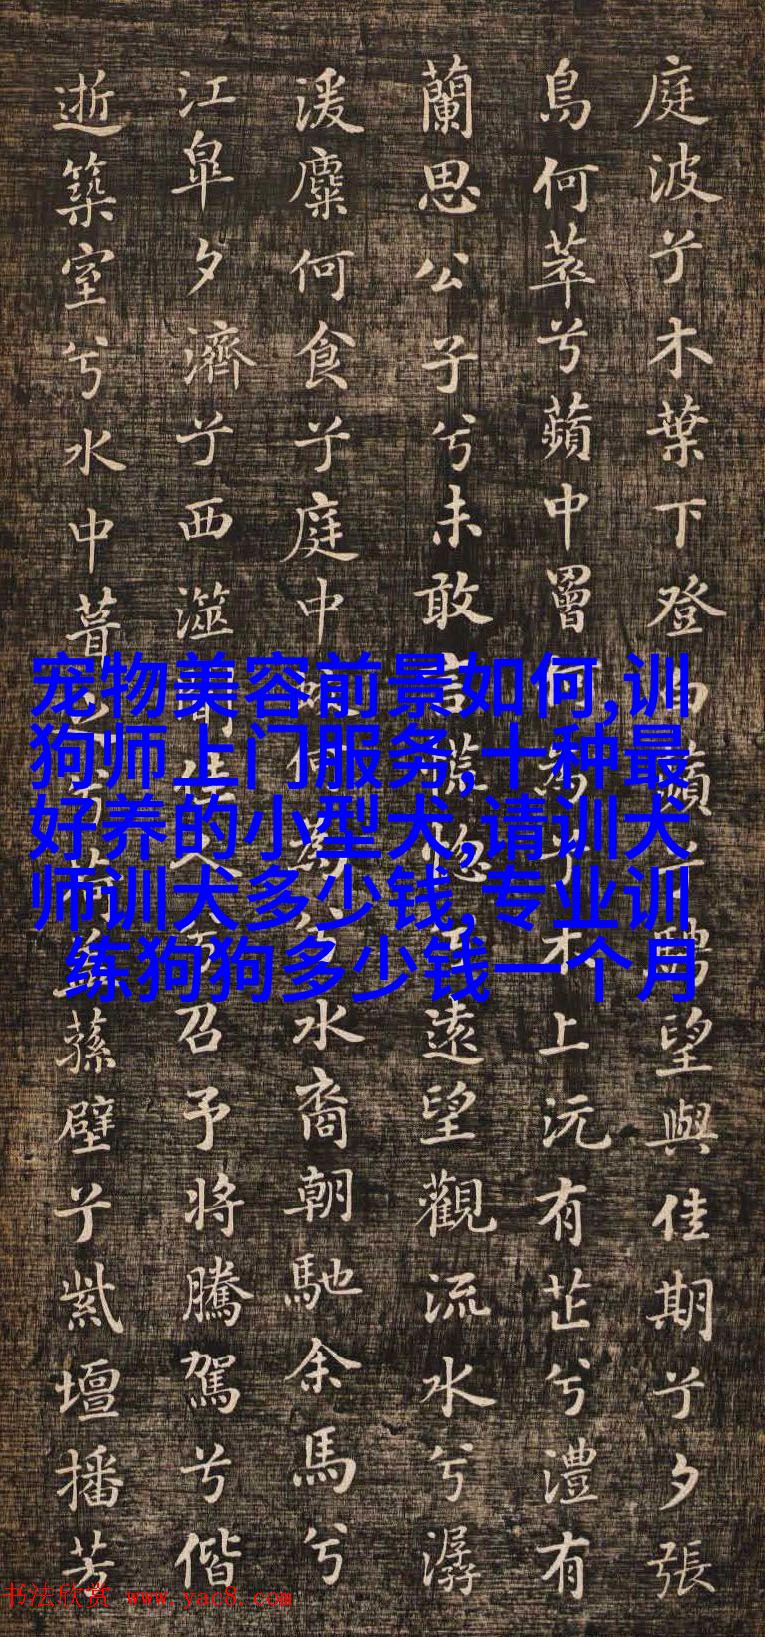 庭波兮木葉下登白蘋兮騁望與佳期兮夕張
鳥何萃兮蘋中罾何為兮木上沅有芷兮澧有
蘭思公子兮未敢言荒惚兮遠望觀流水兮潺
湲麋何食兮庭中何為水裔朝馳余馬兮
江皋夕濟兮西澨聞佳人兮召予將騰駕兮偕
逝築室兮水中葺蓀壁兮紫壇播芳
宠物美容前景如何,训
狗师上门服务,十种最
好养的小型犬,请训犬
师训犬多少钱,专业训
练狗狗多少钱一个月
书法欣赏 www.yac8.com